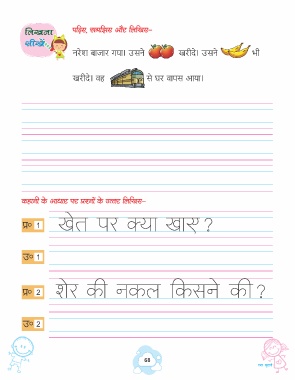 लिखना सीखें
पढ़िए, समझिए और लिखिए–
नरेश बाजार गया। उसने खरीदे। उसने भी
खरीदे। वह से घर वापस आया।
कहानी के आधार पर प्रश्नों के उत्तर लिखिए–
प्र० 1 खेत पर क्या खाए?
उ० 1
प्र० 2 शेर की नकल किसने की?
उ० 2
68